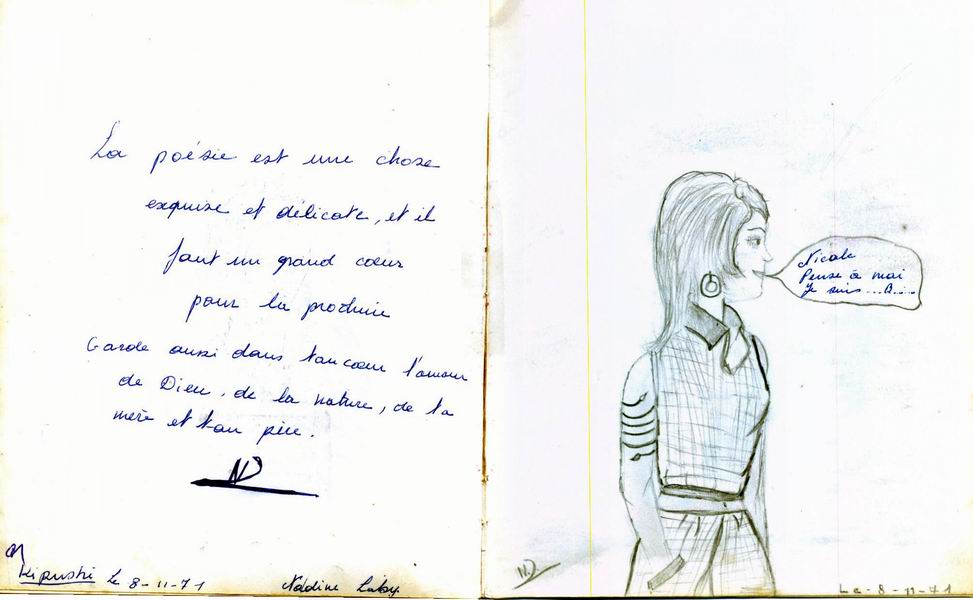 La poésie est une chose
exquise et délicate, et il
faut un grand cœur
pour la produire
Garde aussi dans ton cœur l'amour
de Dieu, de la nature, de ta
mère et ton père.
ND
Kipushi Le 8-11-71
Nadine
Nicole
Pense à moi
Je suis
ND
Le-8-11-71